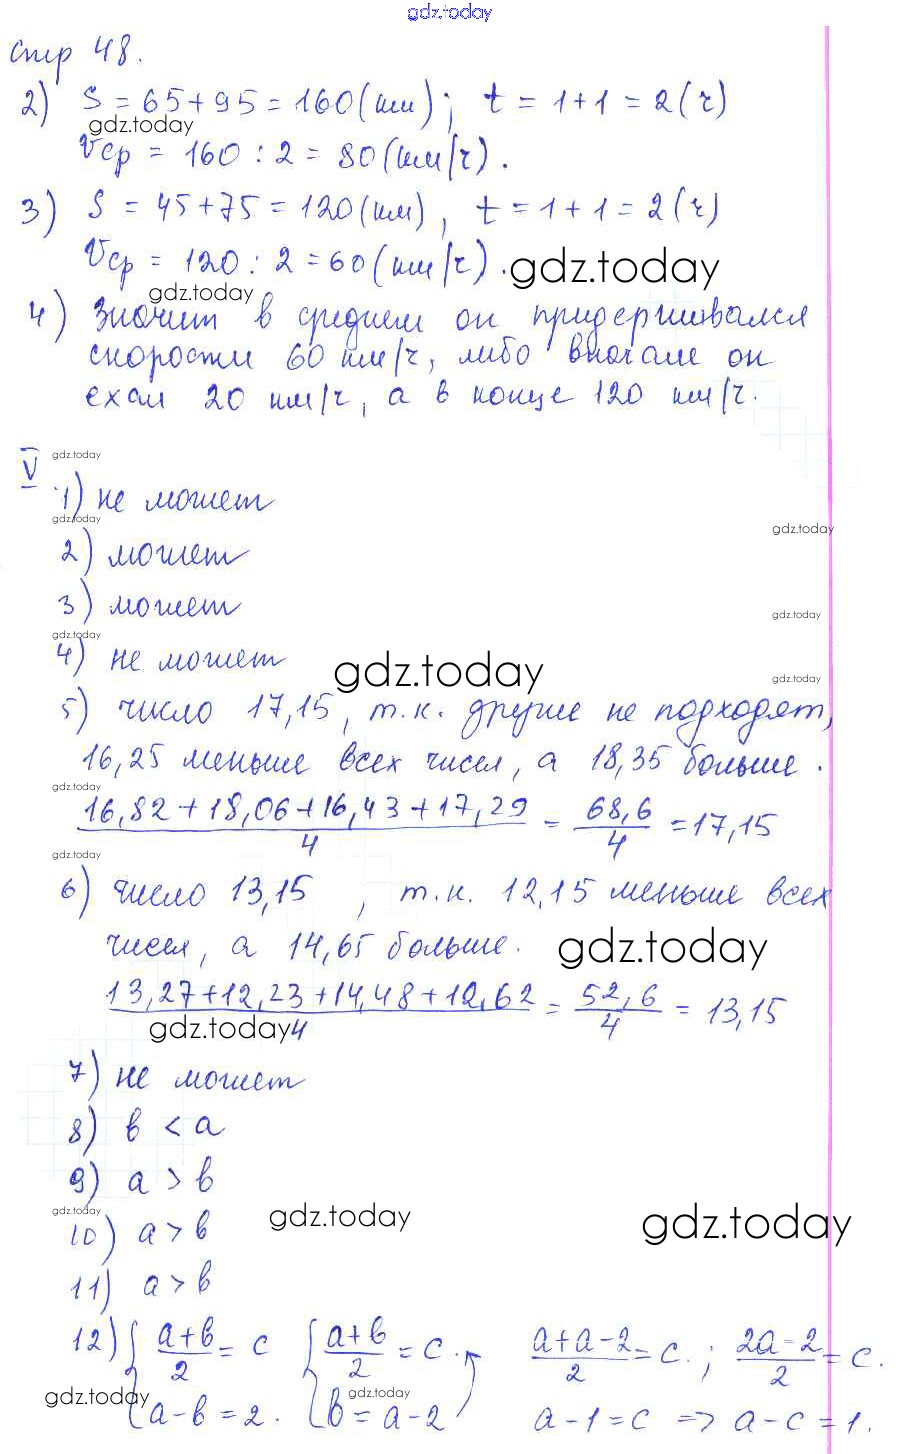 gdz.today
стр 48.
2) S = 65+95 = 160 (км); t = 1+1 = 2 (ч)
gdz.today
Vср = 160 : 2 = 80 (км/ч).
3) S = 45+75 = 120 (км), t = 1+1 = 2 (ч)
Vср = 120 : 2 = 60 (км/ч). gdz.today
gdz.today
4) Значит в среднем он придерживался
скорости 60 км/ч, либо вначале он
ехал 20 км/ч, а в конце 120 км/ч.
V gdz.today
1) не может
gdz.today
gdz.today
2) может
3) может
gdz.today
gdz.today
4) не может gdz.today
gdz.today
5) число 17,15, т.к. другие не подходят,
16,25 меньше всех чисел, а 18,35 больше.
gdz.today
16,82 + 18,06 + 16,43 + 17,29 / 4 = 68,6 / 4 = 17,15
gdz.today
6) число 13,15, т.к. 12,15 меньше всех
чисел, а 14,65 больше. gdz.today
13,27 + 12,23 + 14,48 + 12,62 / 4 = 52,6 / 4 = 13,15
gdz.today
7) не может
8) в < а
9) а > в
gdz.today gdz.today gdz.today
10) а > в
11) а > в
12) { а+в / 2 = с { а+в / 2 = с. а+а-2 / 2 = с.; 2а-2 / 2 = с.
gdz.today gdz.today
а-в = 2. в = а-2 а-1 = с => а-с = 1.